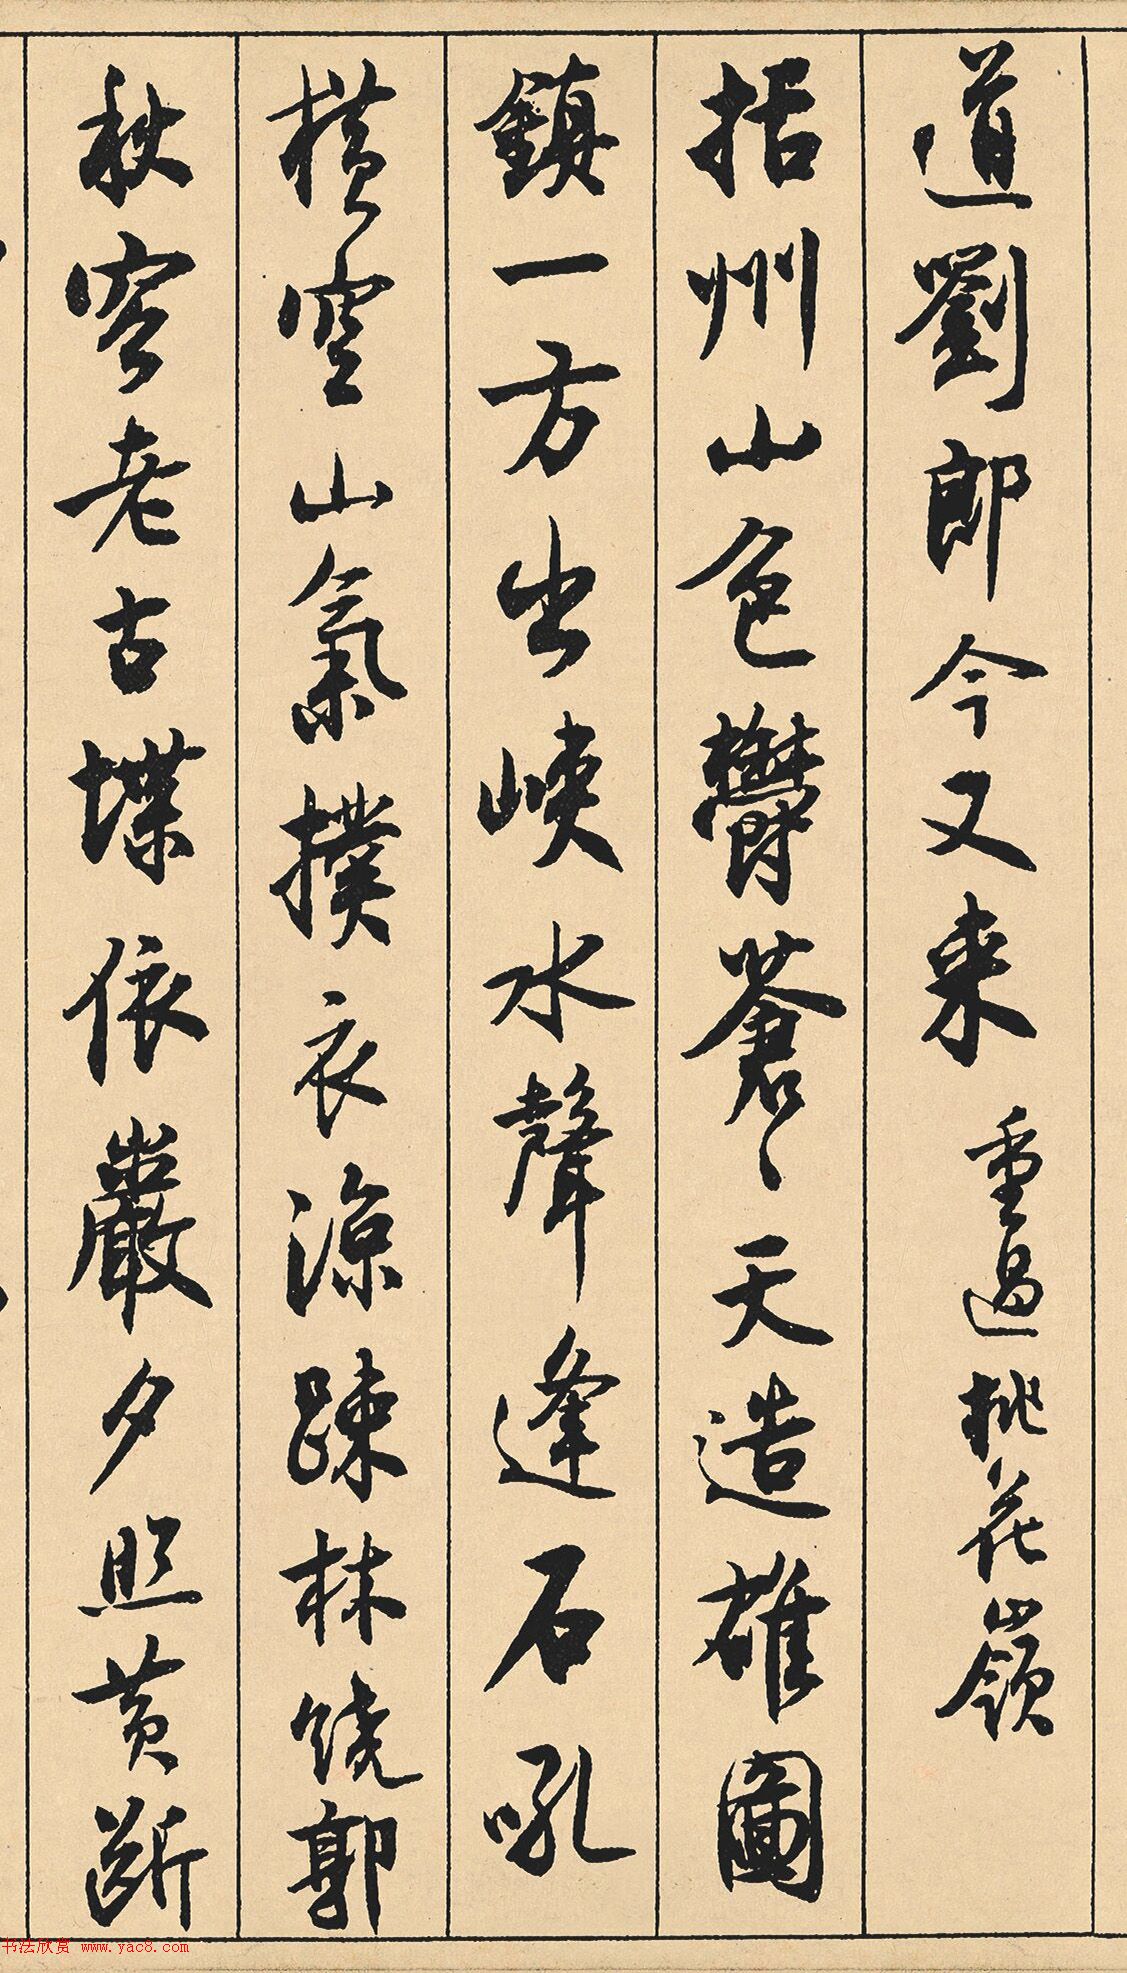 道劉郎今又来 重過桃花嶺
括州山色鬱蒼〻天造雄圖
鎮一方出峽水聲逢石吼
横空山氣撲衣涼疎林饒郭
秋容老古堞依巖夕照黄斷
书法欣赏 www.yac8.com